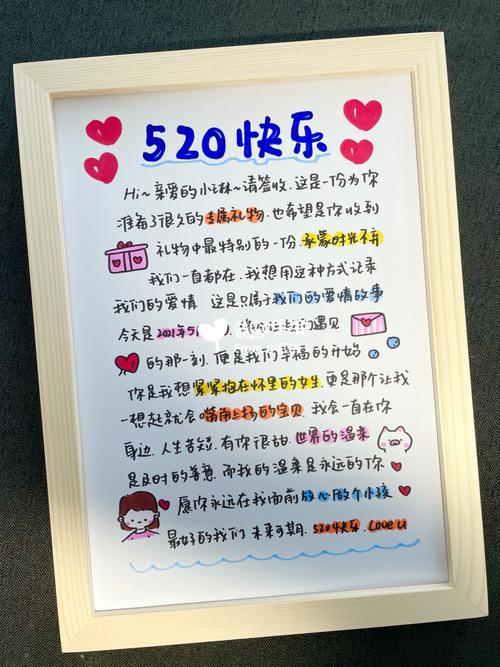 520快乐
Hi~亲爱的小琳~请签收.这是一份为你
准备了很久的专属礼物.也希望是你收到
礼物中最特别的一份.承蒙时光不弃
我们一直都在.我想用这种方式记录
我们的爱情 这是只属于我们的爱情故事
今天是2021年5月 我们遇见
的那一刻.便是我们幸福的开始
你是我想紧紧抱在怀里的女生.更是那个让我
一想起就会嘴角上扬的宝贝.我会一直在你
身边.人生苦短.有你很甜.世界的温柔
是及时的善意.而我的温柔是永远的你
愿你永远在我面前放心做个小孩
最好的我们 未来可期.520快乐.Love u